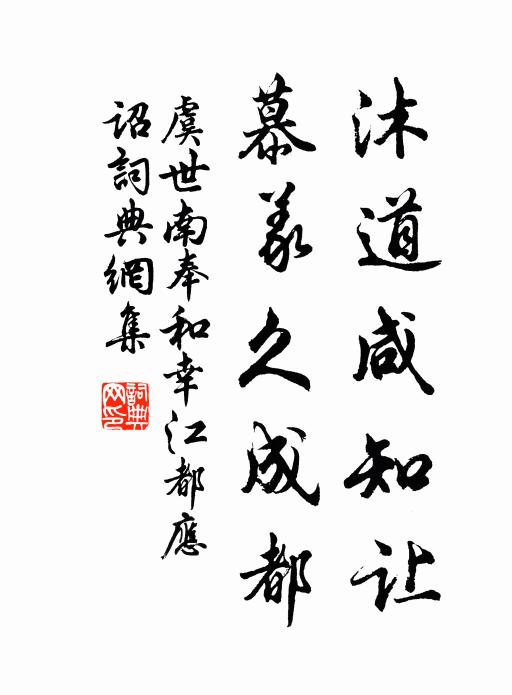 沐道咸知让
慕义久成都
虞世南奉和幸江都應
詔詞典網集
詞典网印